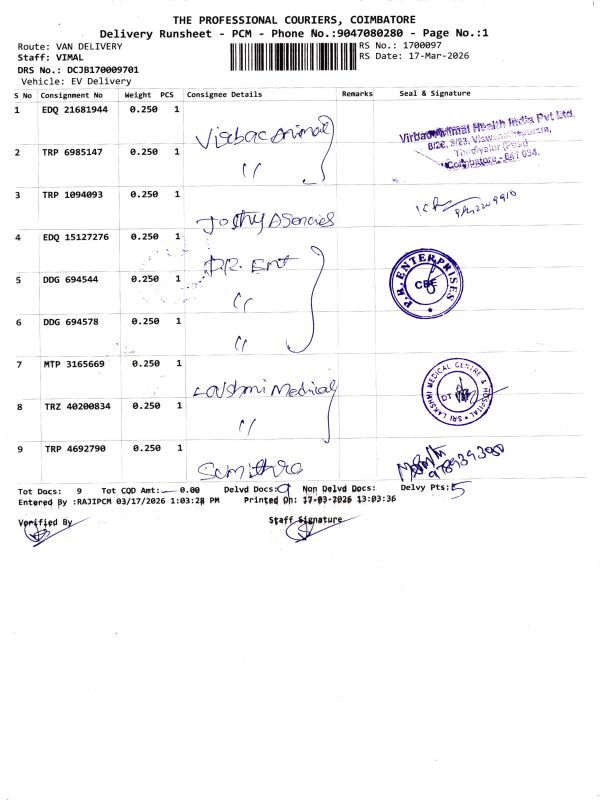 THE PROFESSIONAL COURIERS, COIMBATORE
Delivery Runsheet - PCM - Phone No.:9047080280 - Page No.:1
Route: VAN DELIVERY
RS No.: 1700097
Staff: VIMAL
RS Date: 17-Mar-2026
DRS No.: DCJB170009701
Vehicle: EV Delivery
S No Consignment No Weight PCS Consignee Details Remarks Seal & Signature
1 EDQ 21681944 0.250 1
Virbac Animal
Virbac Animal Health India Pvt Ltd.
8/22, 8/23, Viswanathapuram,
Thudiyalur (Post)
Coimbatore - 641 034.
2 TRP 6985147 0.250 1
"
3 TRP 1094093 0.250 1
Joshy Agencies
4 EDQ 15127276 0.250 1
P.R. Ent
P.R. ENTERPRISES
CBE
5 DDG 694544 0.250 1
"
6 DDG 694578 0.250 1
"
7 MTP 3165669 0.250 1
Lakshmi Medical
SRI LAKSHMI MEDICAL CENTRE & HOSPITAL
DT
8 TRZ 40200834 0.250 1
"
9 TRP 4692790 0.250 1
Sumithra
Tot Docs: 9 Tot COD Amt: 0.00 Delvd Docs: 9 Non Delvd Docs: Delvy Pts: 5
Entered By :RAJIPCM 03/17/2026 1:03:28 PM Printed On: 17-03-2026 13:03:36
Verified By
Staff Signature